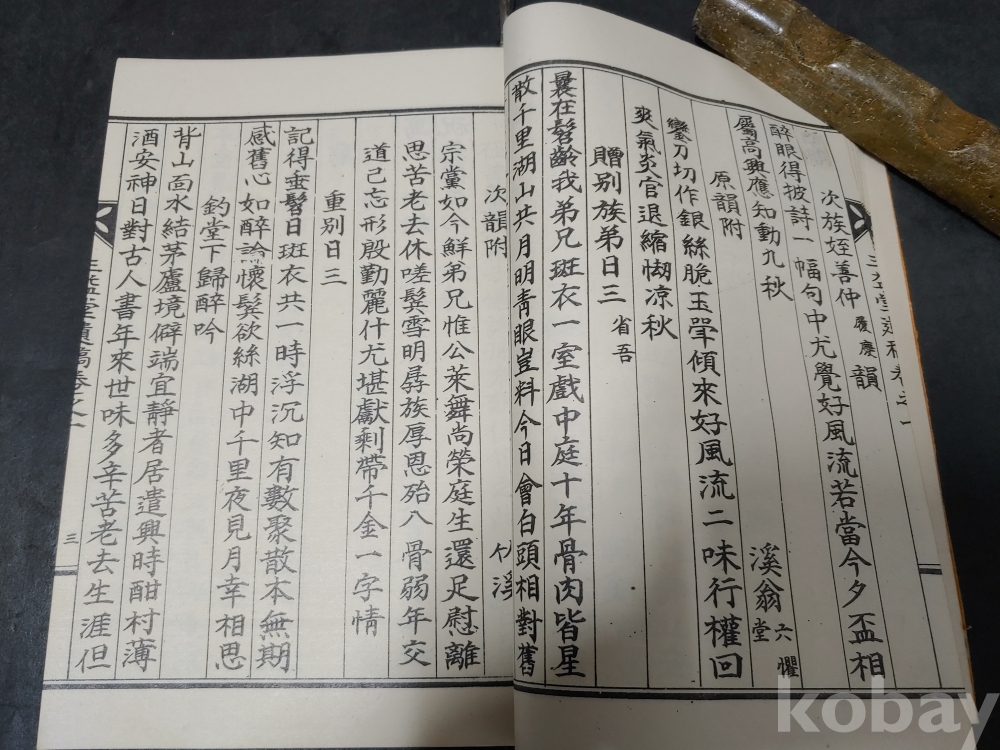 次族姪善仲 慶慶 韻
醉眼得披詩一幅句中尤覺好風流若當今夕盃相
屬高興應知動九秋
原韻附 溪翁 六懼堂
鑾刀切作銀絲脆玉斝傾來好風流二味行權回
爽氣炎官退縮㤢凉秋
贈別族弟日三 省吾
曩在髫齡我弟兄斑衣一室戲中庭十年骨肉皆星
散千里湖山共月明靑眼豈料今日會白頭相對舊
次韻附 竹溪
宗黨如今鮮弟兄惟公萊舞尚榮庭生還足慰離
思苦老去休嗟鬂雪明曷族厚恩殆入骨弱年交
道已忘形殷勤麗什尤堪獻剩帶千金一字情
重別日三
記得垂髫日斑衣共一時浮沉知有數聚散本無期
感舊心如醉論懷鬂欲絲湖中千里夜見月幸相思
釣堂下歸醉吟
背山面水結茅廬境僻端宜靜者居遣興時酣村薄
酒安神日對古人書年來世味多辛苦老去生涯但
三
kobay